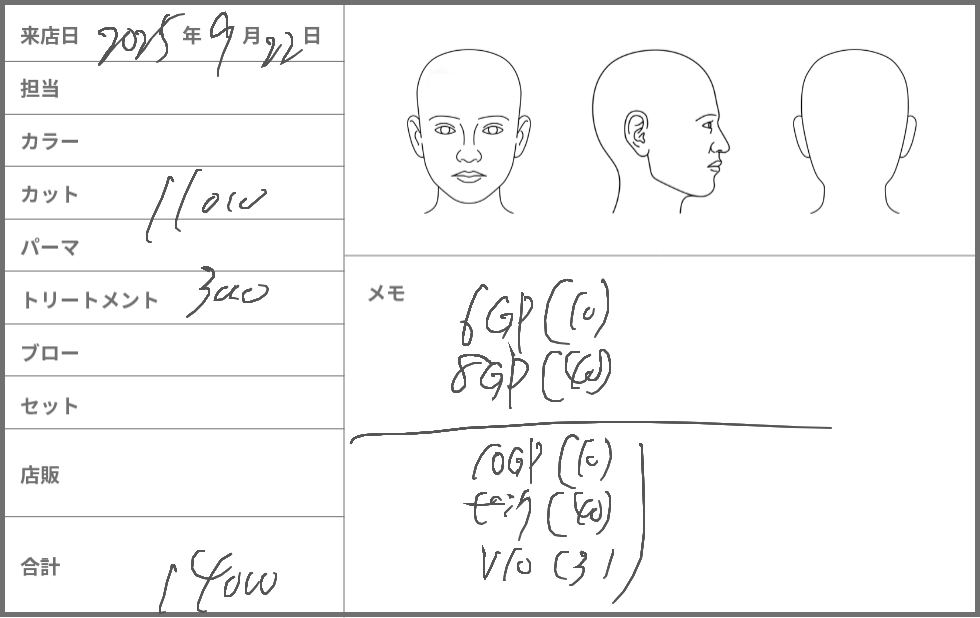 来店日 2025年9月22日
担当
カラー
カット 11000
パーマ
トリートメント 3000
ブロー
セット
店販
合計 14000
メモ
6GP (10)
8GP (40)
10GP (10)
(40)
V10 (3)